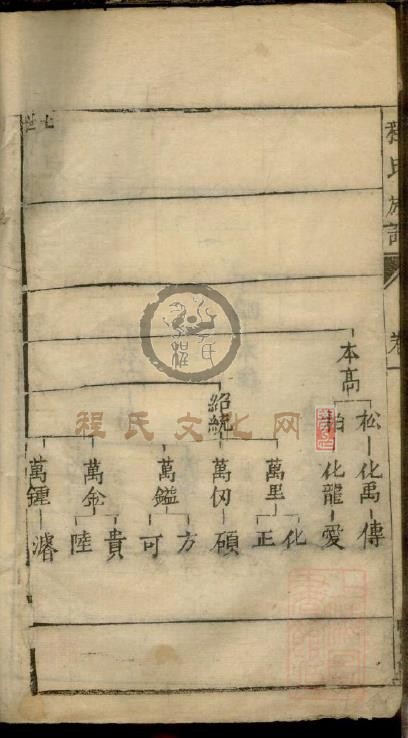 程氏族譜
卷一
本高
松 化禹 傳
柏 化龍 愛
紹統
萬里
化
正
萬仞 碩
萬鎰
方
可
萬
貴
陸
萬鍾 濬
程氏文化网